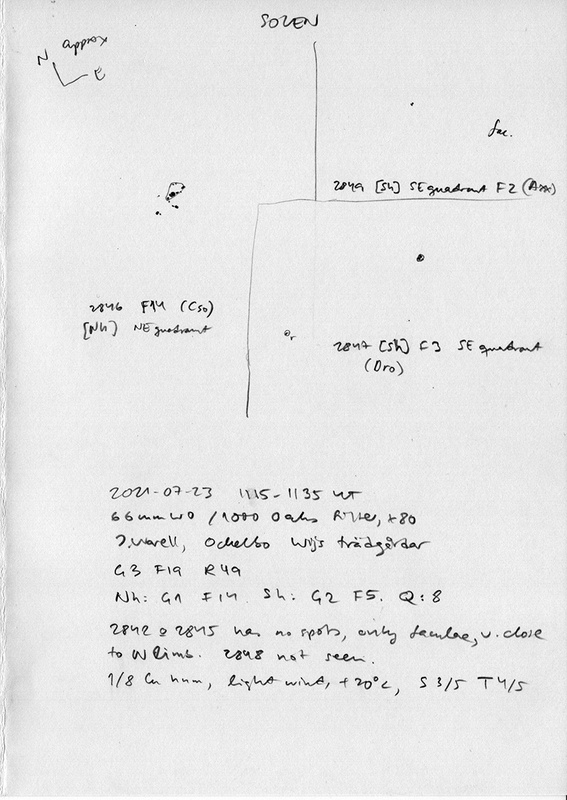 SOLEN
N
E
fac.
2849 [Sh] SE quadrant F2 (Axx)
2846 F14 (Cso)
[Nh] NE quadrant
2847 [Sh] F3 SE quadrant
(Dro)
2021-07-23 1115-1135 UT
66mm WO /1000 Oaks filter, x80
J. Warell, Ockelbo Wij's trädgårdar
G3 F19 R49
Nh: G1 F14 Sh: G2 F5. Q: 8
2842 o 2845 has no spots, only faculae, v. close
to W limb. 2848 not seen.
1/8 Cu hum, light wind, +20°C, S 3/5 T 4/5